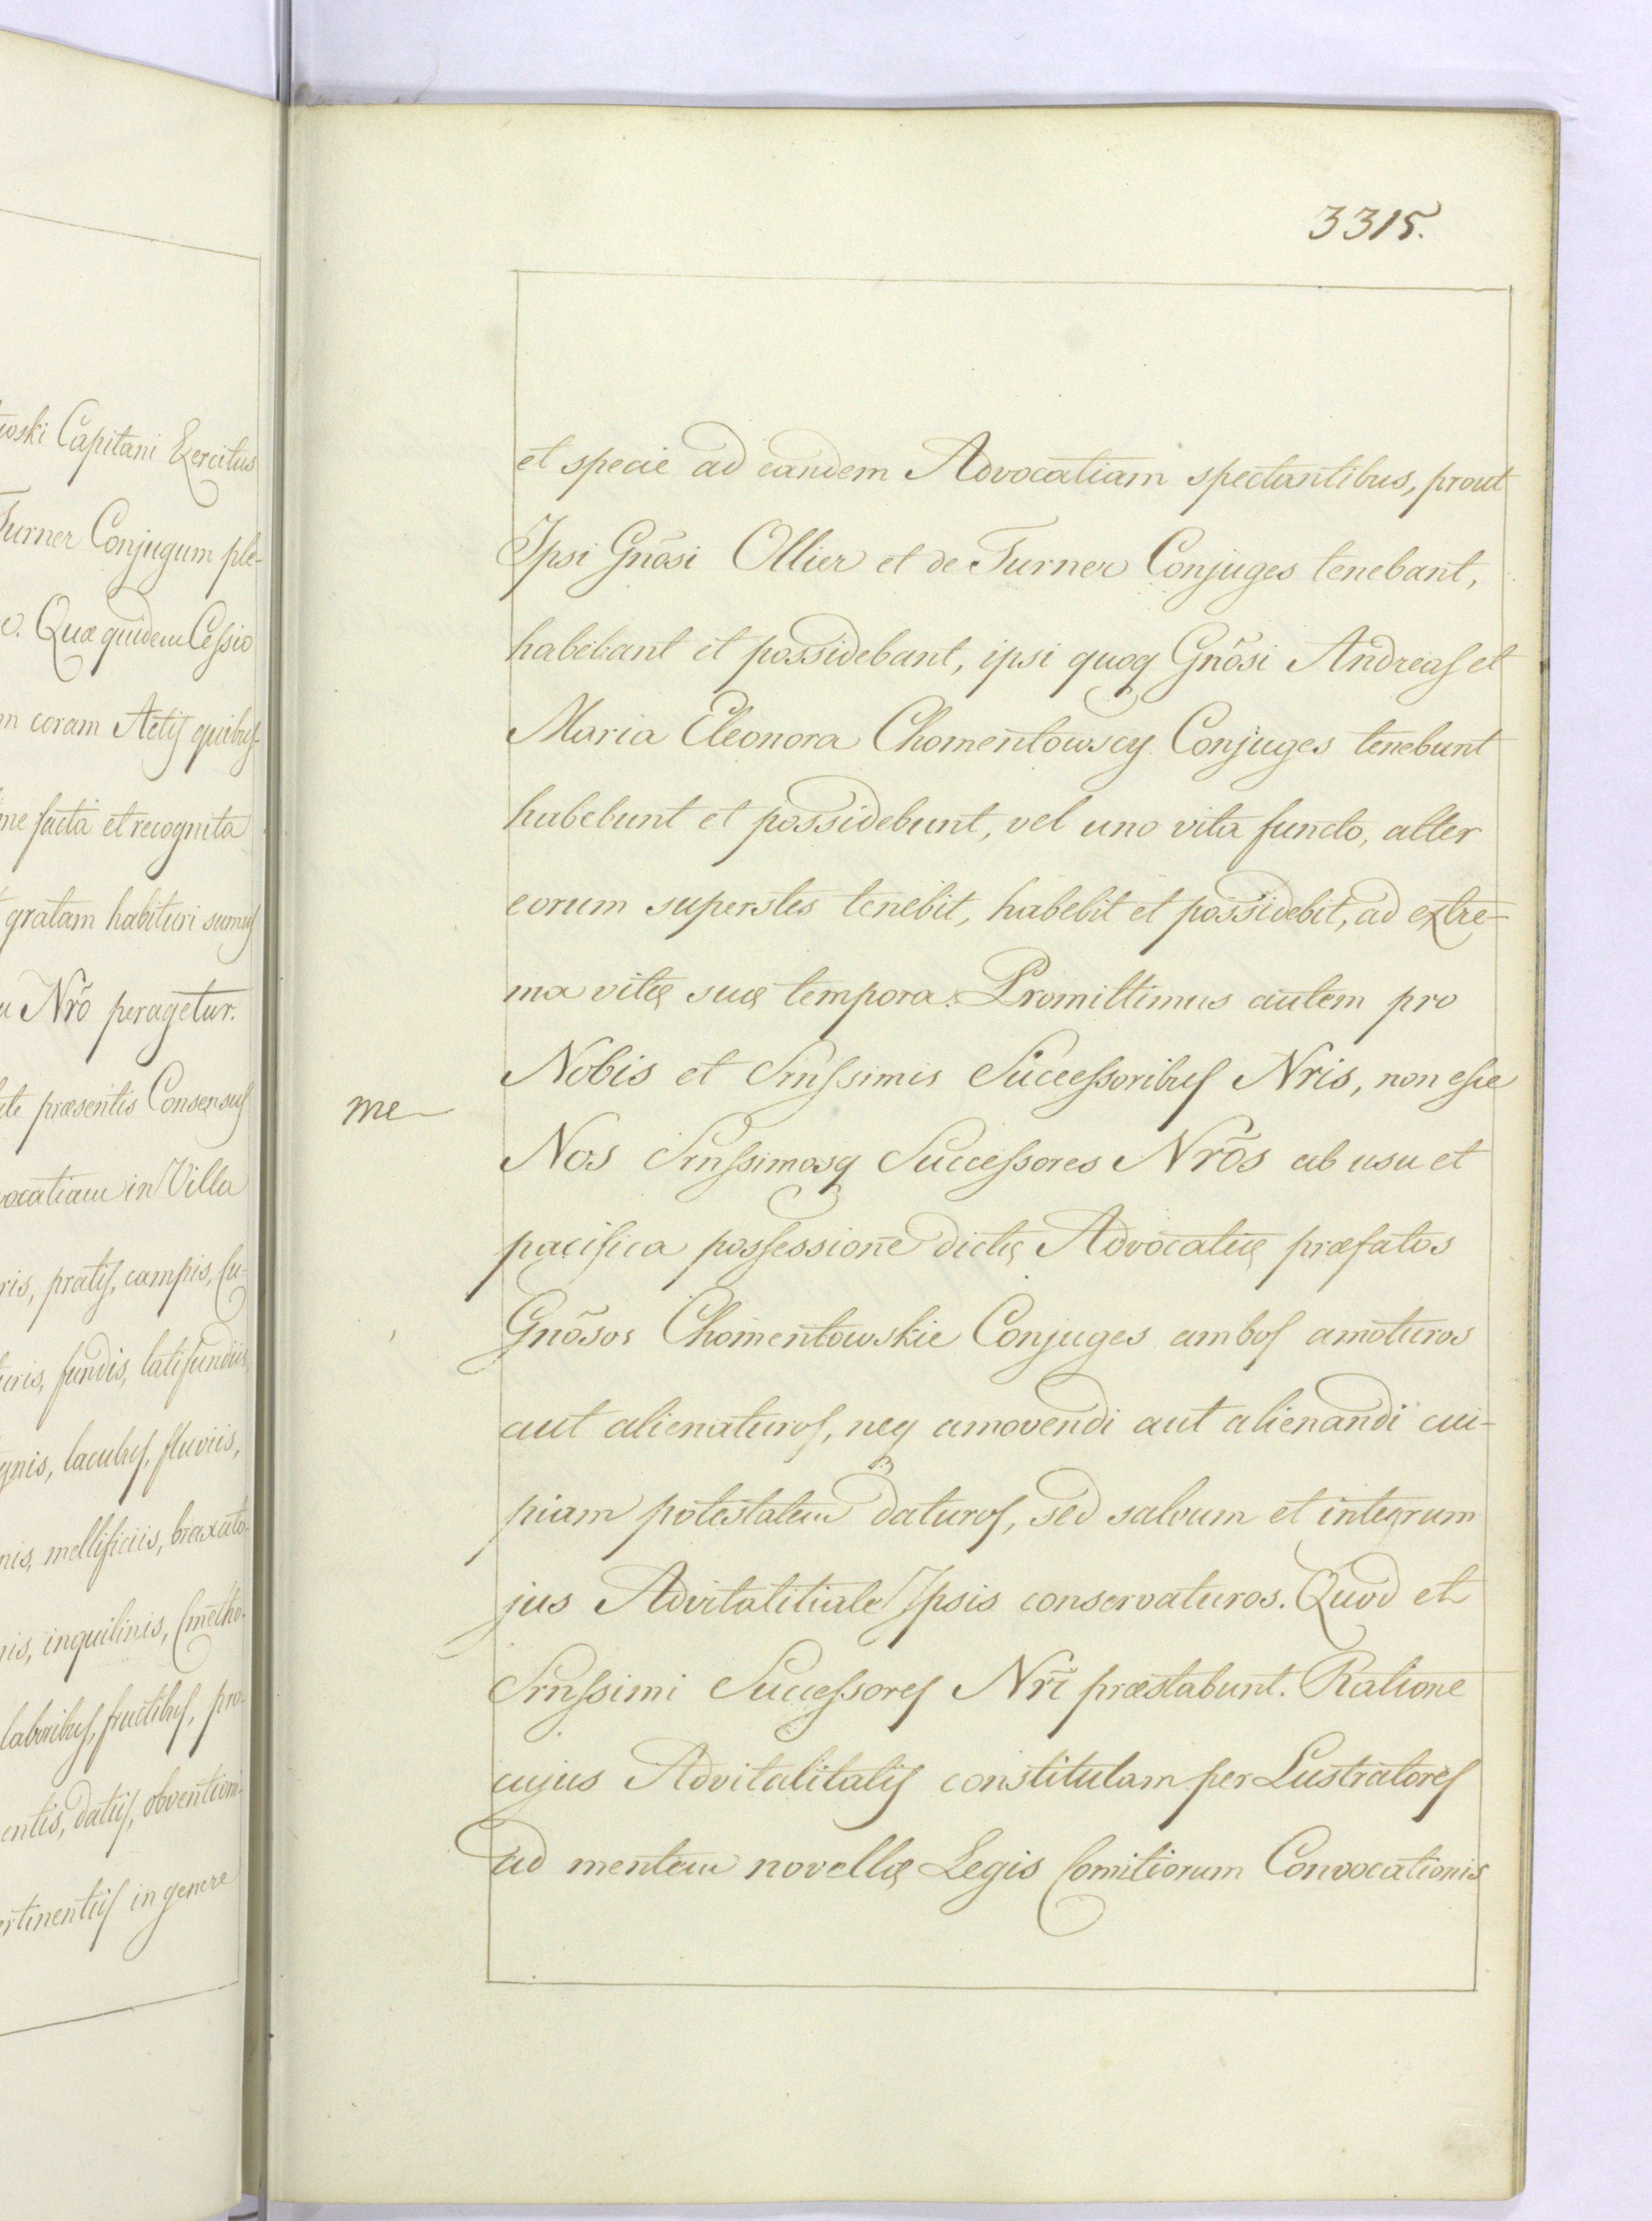 ioski Capitani Exercitus
Turner Conjugum ple-
e. Quæ quidem Cessio
m coram Actis quibus-
ne facta et recognita
gratam habituri sumus
u Nrõ peragetur.
præsentis Consensus
vocatiam in Villa
ris, pratis, campis, Cu-
uris, fundis, latifundiis,
gnis, lacubus, fluviis,
nis, mellificiis, braxato-
nis, inquilinis, Cmetho-
laboribus, fructibus, pro-
entis, datiis, obvention-
ertinentiis in genere
3315.
et specie ad eandem Advocatiam spectantibus, prout
Ipsi Gnõsi Ollier et de Turner Conjuges tenebant,
habebant et possidebant, ipsi quoq Gnõsi Andreas et
Maria Eleonora Chomentowscy Conjuges tenebunt
habebunt et possidebunt, vel uno vita functo, alter
eorum superstes tenebit, habebit et possidebit, ad extre-
ma vitę suę tempora. Promittimus autem pro
Nobis et Srnssimis Successoribus Nris, non esse
me
Nos Srnssimosq Successores Nrõs ab usu et
pacifica possessione dictę Advocatię præfatos
Gnõsos Chomentowskie Conjuges ambos amoturos
aut alienaturos, neq amovendi aut alienandi cui-
piam potestatem daturos, sed salvum et integrum
jus Advitalitiale Ipsis conservaturos. Quod et
Srnssimi Successores Nrĩ præstabunt. Ratione
cujus Advitalitatis constitutam per Lustratores
ad mentem novellę Legis Comitiorum Convocationis